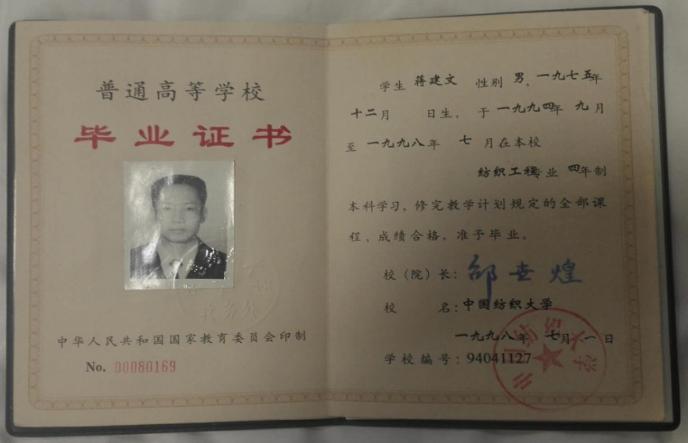 普通高等学校
毕业证书
中华人民共和国国家教育委员会印制
No. 00080169
学生 蒋建文 性别 男，一九七五年
十二月 日生，于一九九四年 九月
至一九九八年 七月在本校
纺织工程专业 四年制
本科学习，修完教学计划规定的全部课
程，成绩合格，准予毕业。
校（院）长：邵世煌
校 名：中国纺织大学
一九九八年 七月 一日
学校编号：94041127